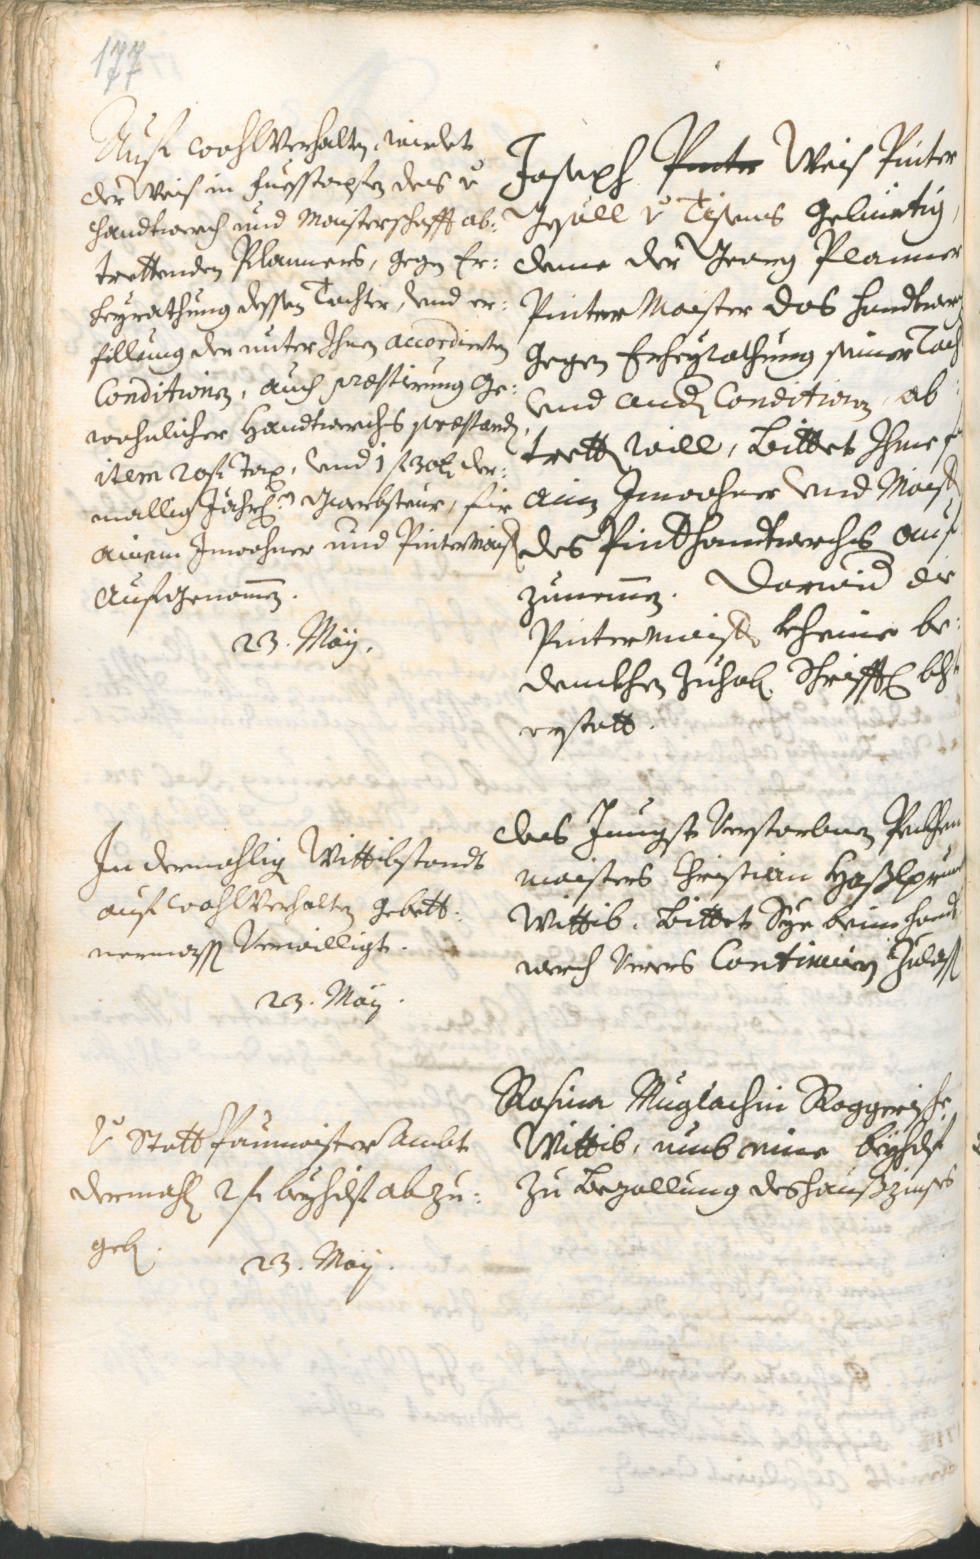 177
Auf wohlVerhalten, wirdet
der Weis in fuesstapfen des v̈
Handtwerch und Maisterschafft ab-
trettenden Planners, gegen Er-
heyrathung dessen Tochter, vnd er-
fillung der unter Ihnen accordierten
Conditionen, auch præstirung ge-
wohnlicher Handtwerchs præstanden,
item 20 f Tax, vnd 1 f 30 x der-
mallig Jährl. Gwerbsteur, fir
ainem Inwohner und Pintermaister
aufgenommen.
23. Maÿ.
Joseph Pinter Weis Pinter
Gsöll v̈ Tisens gebürtig,
deme der Georg Planner
Pinter Maister das Handtwer
gegen Erheyrathung seiner Toch
vnd andern Conditionen, ab
tretten will, bittet Ihme f
ain Inwohner vnd Maist
des Pinthandtwerchs auf
zunemmen. Darwider die
Pintermaister kheine be-
denckhen zuhaben Schrifftl.
erstatt.
In dermahlig Wittibstandt
auf wohlVerhalten gebett-
nermassen Verwilligt.
23. Maÿ.
des Jungst verstorbnen Peckhen
maisters Christian Haßlprun
Wittib. bittet Sye beim handt
werch verers Continuieren Zulass
v̈ Statt Paumaister Ambt
dermahlen 2 f beyhilf abzu-
geben.
23. Maÿ.
Rosina Muglachin Roggerische
Wittib, umb eine beyhilf
zu bezallung des haußzinses